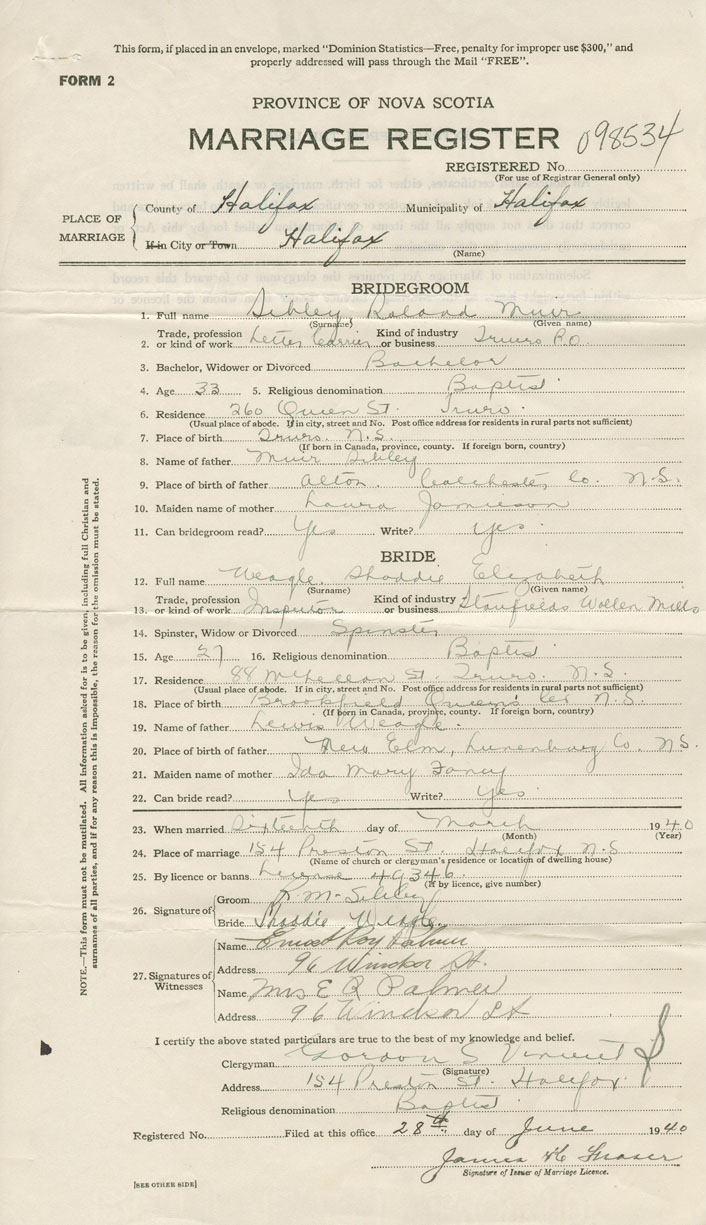 This form, if placed in an envelope, marked "Dominion Statistics—Free, penalty for improper use $300," and
properly addressed will pass through the Mail "FREE".
FORM 2
PROVINCE OF NOVA SCOTIA
MARRIAGE REGISTER 098534
REGISTERED No.
(For use of Registrar General only)
PLACE OF MARRIAGE
County of Halifax Municipality of Halifax
If in City or Town Halifax
(Name)
BRIDEGROOM
1. Full name Sibley Roland Muir
(Surname) (Given name)
2. Trade, profession or kind of work Letter Carrier Kind of industry or business Truro P.O.
3. Bachelor, Widower or Divorced Bachelor
4. Age 33 5. Religious denomination Baptist
6. Residence 260 Queen St. Truro
(Usual place of abode. If in city, street and No. Post office address for residents in rural parts not sufficient)
7. Place of birth Truro N.S.
(If born in Canada, province, county. If foreign born, country)
8. Name of father Muir Sibley
9. Place of birth of father Alton Colchester Co. N.S.
10. Maiden name of mother Laura Jamieson
11. Can bridegroom read? Yes Write? Yes
BRIDE
12. Full name Weagle Shaddie Elizabeth
(Surname) (Given name)
13. Trade, profession or kind of work Inspector Kind of industry or business Stanfields Wollen Mills
14. Spinster, Widow or Divorced Spinster
15. Age 27 16. Religious denomination Baptist
17. Residence 88 McClellan St. Truro. N.S.
(Usual place of abode. If in city, street and No. Post office address for residents in rural parts not sufficient)
18. Place of birth Brookfield Queens Co N.S.
(If born in Canada, province, county. If foreign born, country)
19. Name of father Lewis Weagle
20. Place of birth of father New Elm, Lunenburg Co. N.S.
21. Maiden name of mother Ida Mary Fancy
22. Can bride read? Yes Write? Yes
23. When married Sixteenth day of March 1940
(Month) (Year)
24. Place of marriage 154 Preston St. Halifax N.S
(Name of church or clergyman's residence or location of dwelling house)
25. By licence or banns License 49346
(If by licence, give number)
26. Signature of
Groom R. M. Sibley
Bride Shaddie Weagle
27. Signatures of Witnesses
Name Ernest Roy Palmer
Address 96 Windsor St.
Name Mrs E R Palmer
Address 96 Windsor St
I certify the above stated particulars are true to the best of my knowledge and belief.
Clergyman Gordon S Vincent
(Signature)
Address 154 Preston St. Halifax
Religious denomination Baptist
Registered No. Filed at this office 28th day of June 1940
James Fraser
Signature of Issuer of Marriage Licence.
[SEE OTHER SIDE]
NOTE.—This form must not be mutilated. All information asked for is to be given, including full Christian and
surnames of all parties, and if for any reason this is impossible, the reason for the omission must be stated.